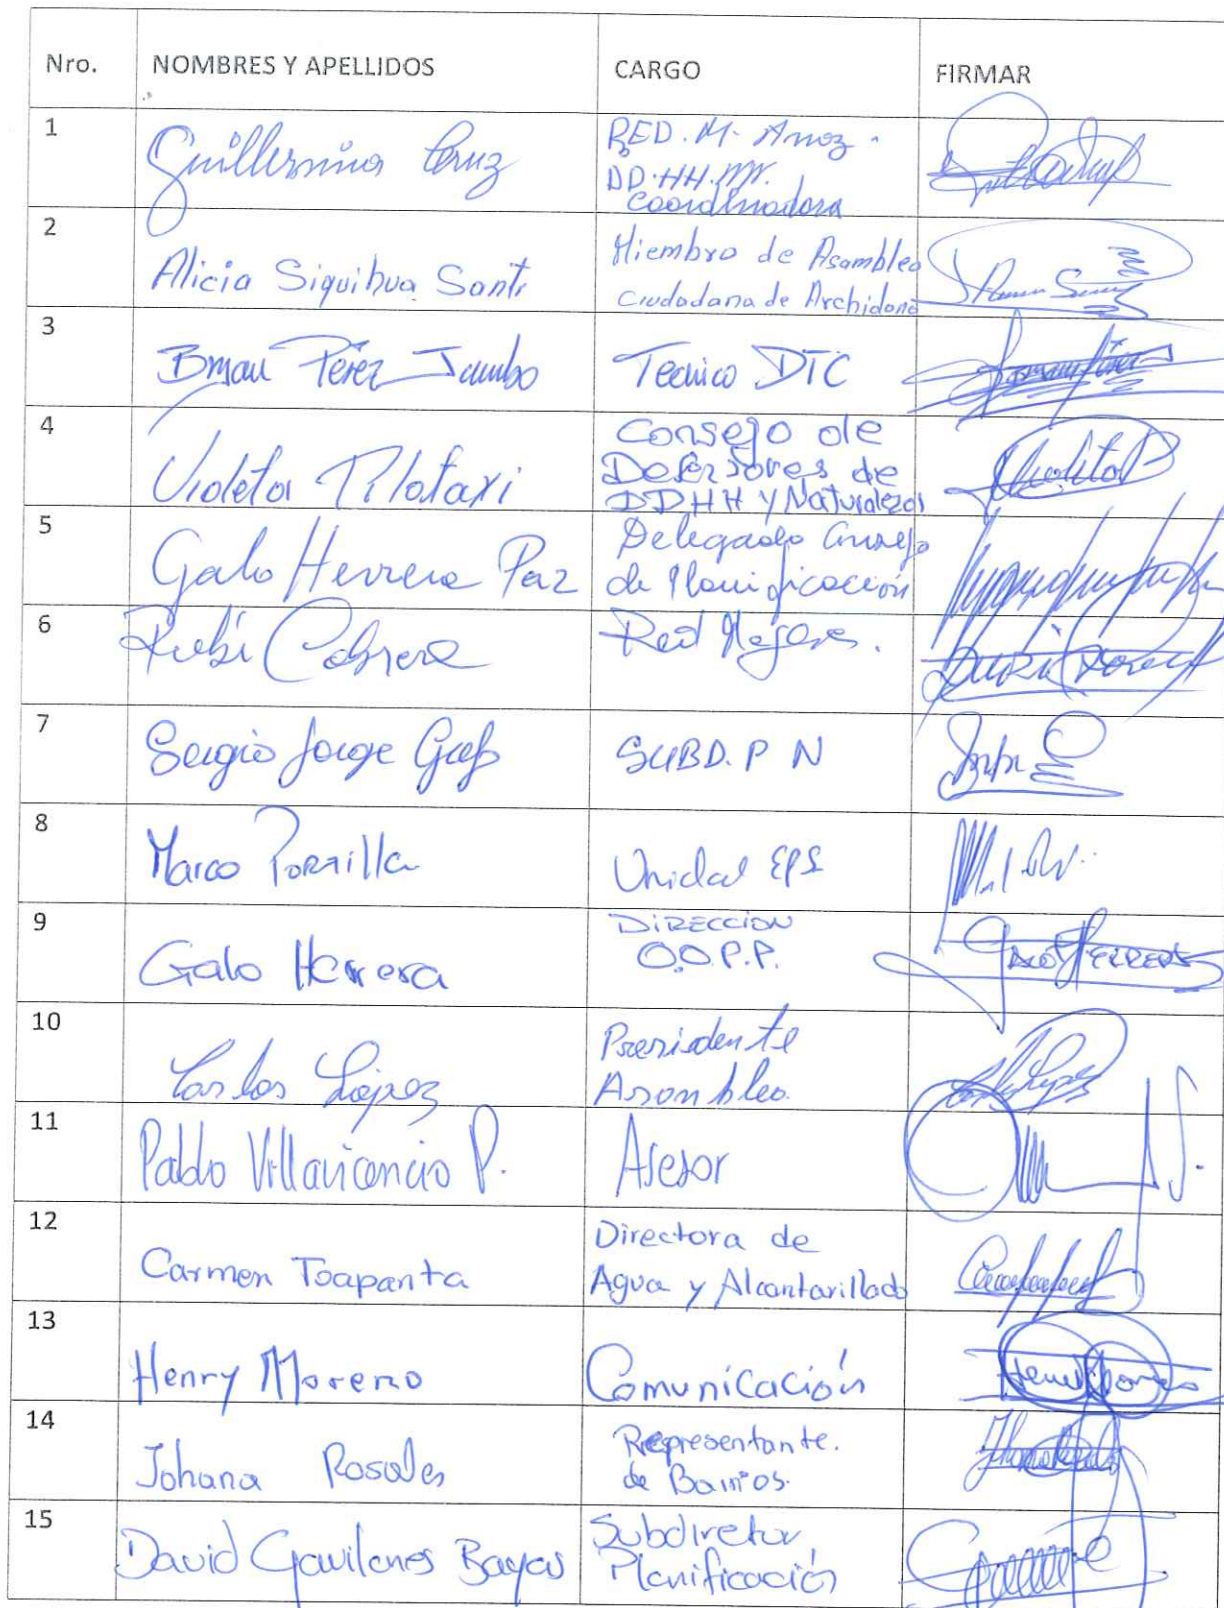 Nro. NOMBRES Y APELLIDOS CARGO FIRMAR
1 Guillermina Cruz RED. M.
DD.HH.
Coordinadora
2 Alicia Siquihua Santi Miembro de Asamblea
Ciudadana de Archidona
3 Bryan Pérez Jumbo Tecnico DTC
4 Violeta Pilataxi Consejo de
Defensores de
DDHH y Naturaleza
5 Galo Herrera Paz Delegado Consejo
de Planificación
6 Rubi Cabrera Red Mujeres.
7 Sergio Jorge Gref SUBD. P N
8 Marco Porrilla Unidad EPS
9 Galo Herrera DIRECCION
O.O.P.P. GALO HERRERA
10 Carlos López Presidente
Asamblea
11 Pablo Villavicencio P. Asesor
12 Carmen Toapanta Directora de
Agua y Alcantarillado
13 Henry Moreno Comunicación
14 Johana Rosales Representante.
de Barrios.
15 David Gavilanes Bayas Subdiretor
Planificación